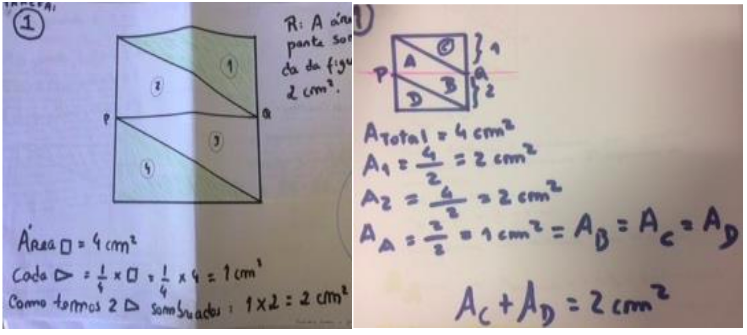 1
R: A área
parte som
da da figu
2 cm².
1
2
P
Q
3
4
Área □ = 4 cm²
Cada ▷ = 1/4 × □ = 1/4 × 4 = 1 cm²
Como temos 2 ▷ sombreados: 1 × 2 = 2 cm²
C
A
} 1
P
Q
B
D
} 2
A Total = 4 cm²
A₁ = 4/2 = 2 cm²
A₂ = 4/2 = 2 cm²
A_A = 2/2 = 1 cm² = A_B = A_C = A_D
A_C + A_D = 2 cm²